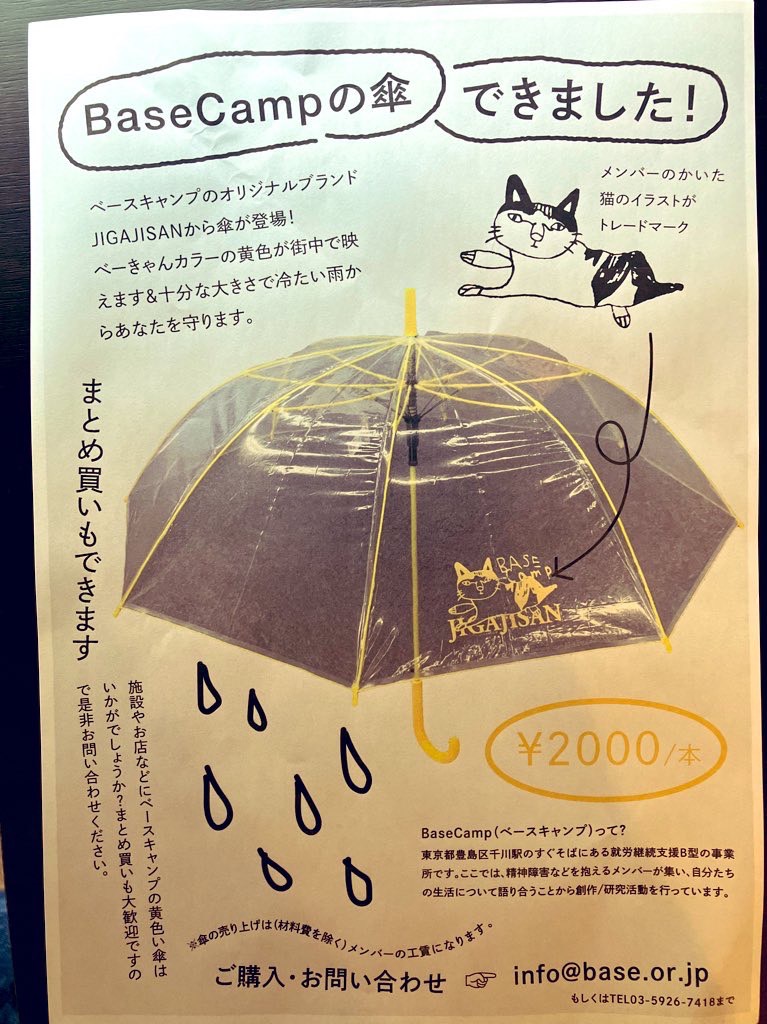 BaseCampの傘 できました!
ベースキャンプのオリジナルブランド
JIGAJISANから傘が登場!
べーきゃんカラーの黄色が街中で映
えます&十分な大きさで冷たい雨か
らあなたを守ります。
メンバーのかいた
猫のイラストが
トレードマーク
まとめ買いもできます
BASE
Camp
JIGAJISAN
施設やお店などにベースキャンプの黄色い傘は
いかがでしょうか?まとめ買いも大歓迎ですの
で是非お問い合わせください。
¥2000/本
BaseCamp(ベースキャンプ)って?
東京都豊島区千川駅のすぐそばにある就労継続支援B型の事業
所です。ここでは、精神障害などを抱えるメンバーが集い、自分たち
の生活について語り合うことから創作/研究活動を行っています。
※傘の売り上げは(材料費を除く)メンバーの工賃になります。
ご購入・お問い合わせ ☞ info@base.or.jp
もしくはTEL03-5926-7418まで